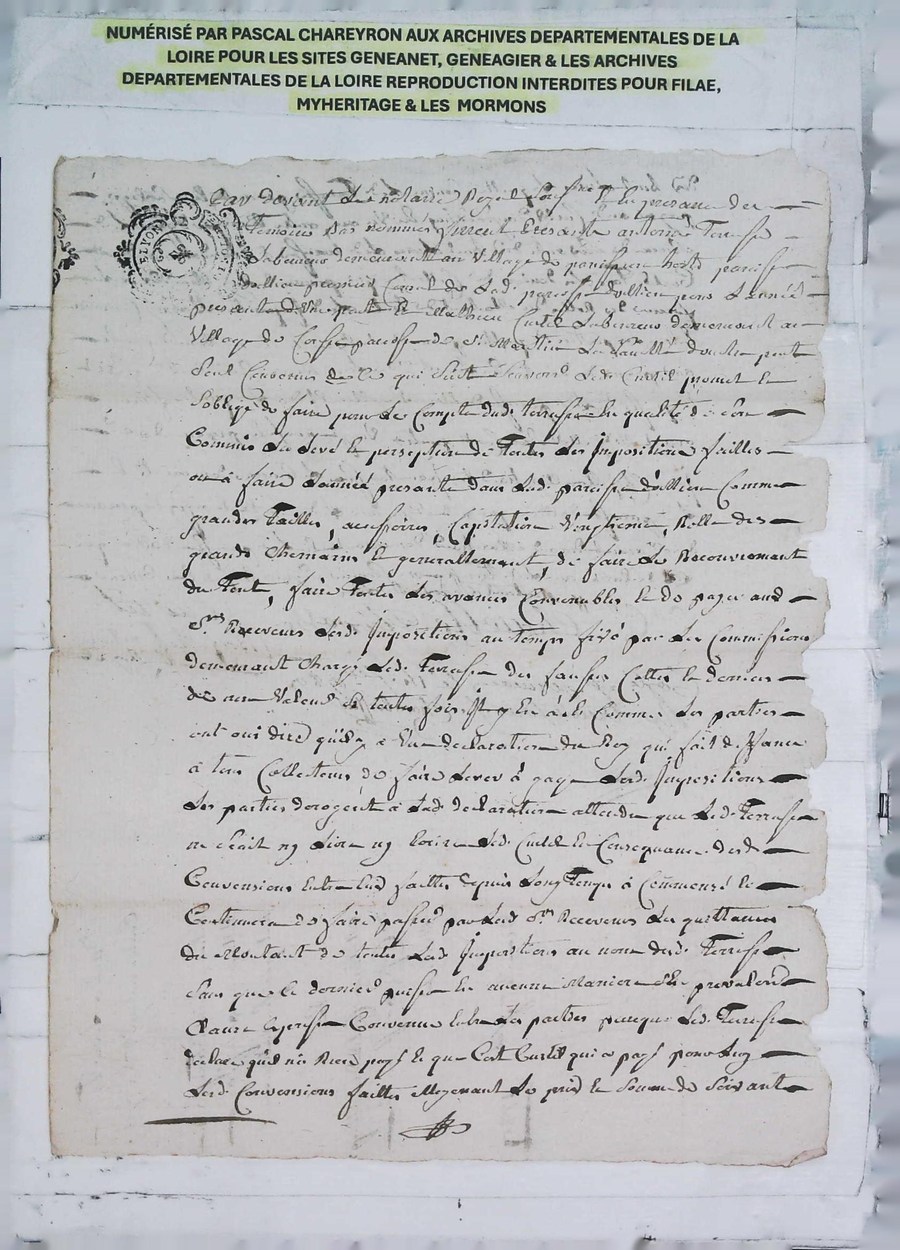 NUMÉRISÉ PAR PASCAL CHAREYRON AUX ARCHIVES DEPARTEMENTALES DE LA
LOIRE POUR LES SITES GENEANET, GENEAGIER & LES ARCHIVES
DEPARTEMENTALES DE LA LOIRE REPRODUCTION INTERDITES POUR FILAE,
MYHERITAGE & LES MORMONS
Par devant Le notaire Royal en presance des
Temoins bas nommes furent presants antoine Terrasse
Laboureur demeurant au village de paroisse
premier Consul de Lad. paroisse pour L'année
presante d'Une part Et Mathieu Curtil Laboureur demeurant au
Village de paroisse de St. Martin d'autre part
Sont Convenus de Ce qui Suit Led. Curtil promet Et
s'oblige de faire pour Le Compte dud. terrasse En qualité de Son
Commis La Levé Et perseption de toutes Les Impositions faittes
ou à faire L'année presante dans Lad. paroisse Comme
grandes Tailles, Capitation Vingtieme, Rolle des
grands Chemains Et generallement, de faire Le Recouvrement
du tout, faire toutes Les avances Convenables Et de payer aud.
Srs. Receveurs Lesd. Impositions au temps fixé par Les Commissions
demeurant Chargé Led. Terrasse des fausses Cottes Et deniers
de non Valeur toutes fois Comme Les parties
ont oui dire qu'il y a Une declaration du Roy qui fait
à tous Collecteurs de faire Lever à gage Lesd. Impositions
Les parties derogent à Lad. declaration attendu que Led. Terrasse
ne Scait ny Lire ny Ecrire Led. Curtil En Consequance desd.
Convensions Entre Eux faittes depuis Longtemps à Commensé Et
Continuera de faire passer par Lesd. Srs. Receveurs Les quittances
du Montant de toutes Lesd. Impositions au nom dud. Terrasse
Sans que Ce dernier puisse En aucune Maniere S'En prevaloir
Clause Expresse Convenue Entre Les parties Led. Terrasse
declare qu'il n'a Rien payé Et que C'est Curtil qui a payé pour Luy
Lesd. Convensions faittes Moyenant Le prix Et Somme de Soixante